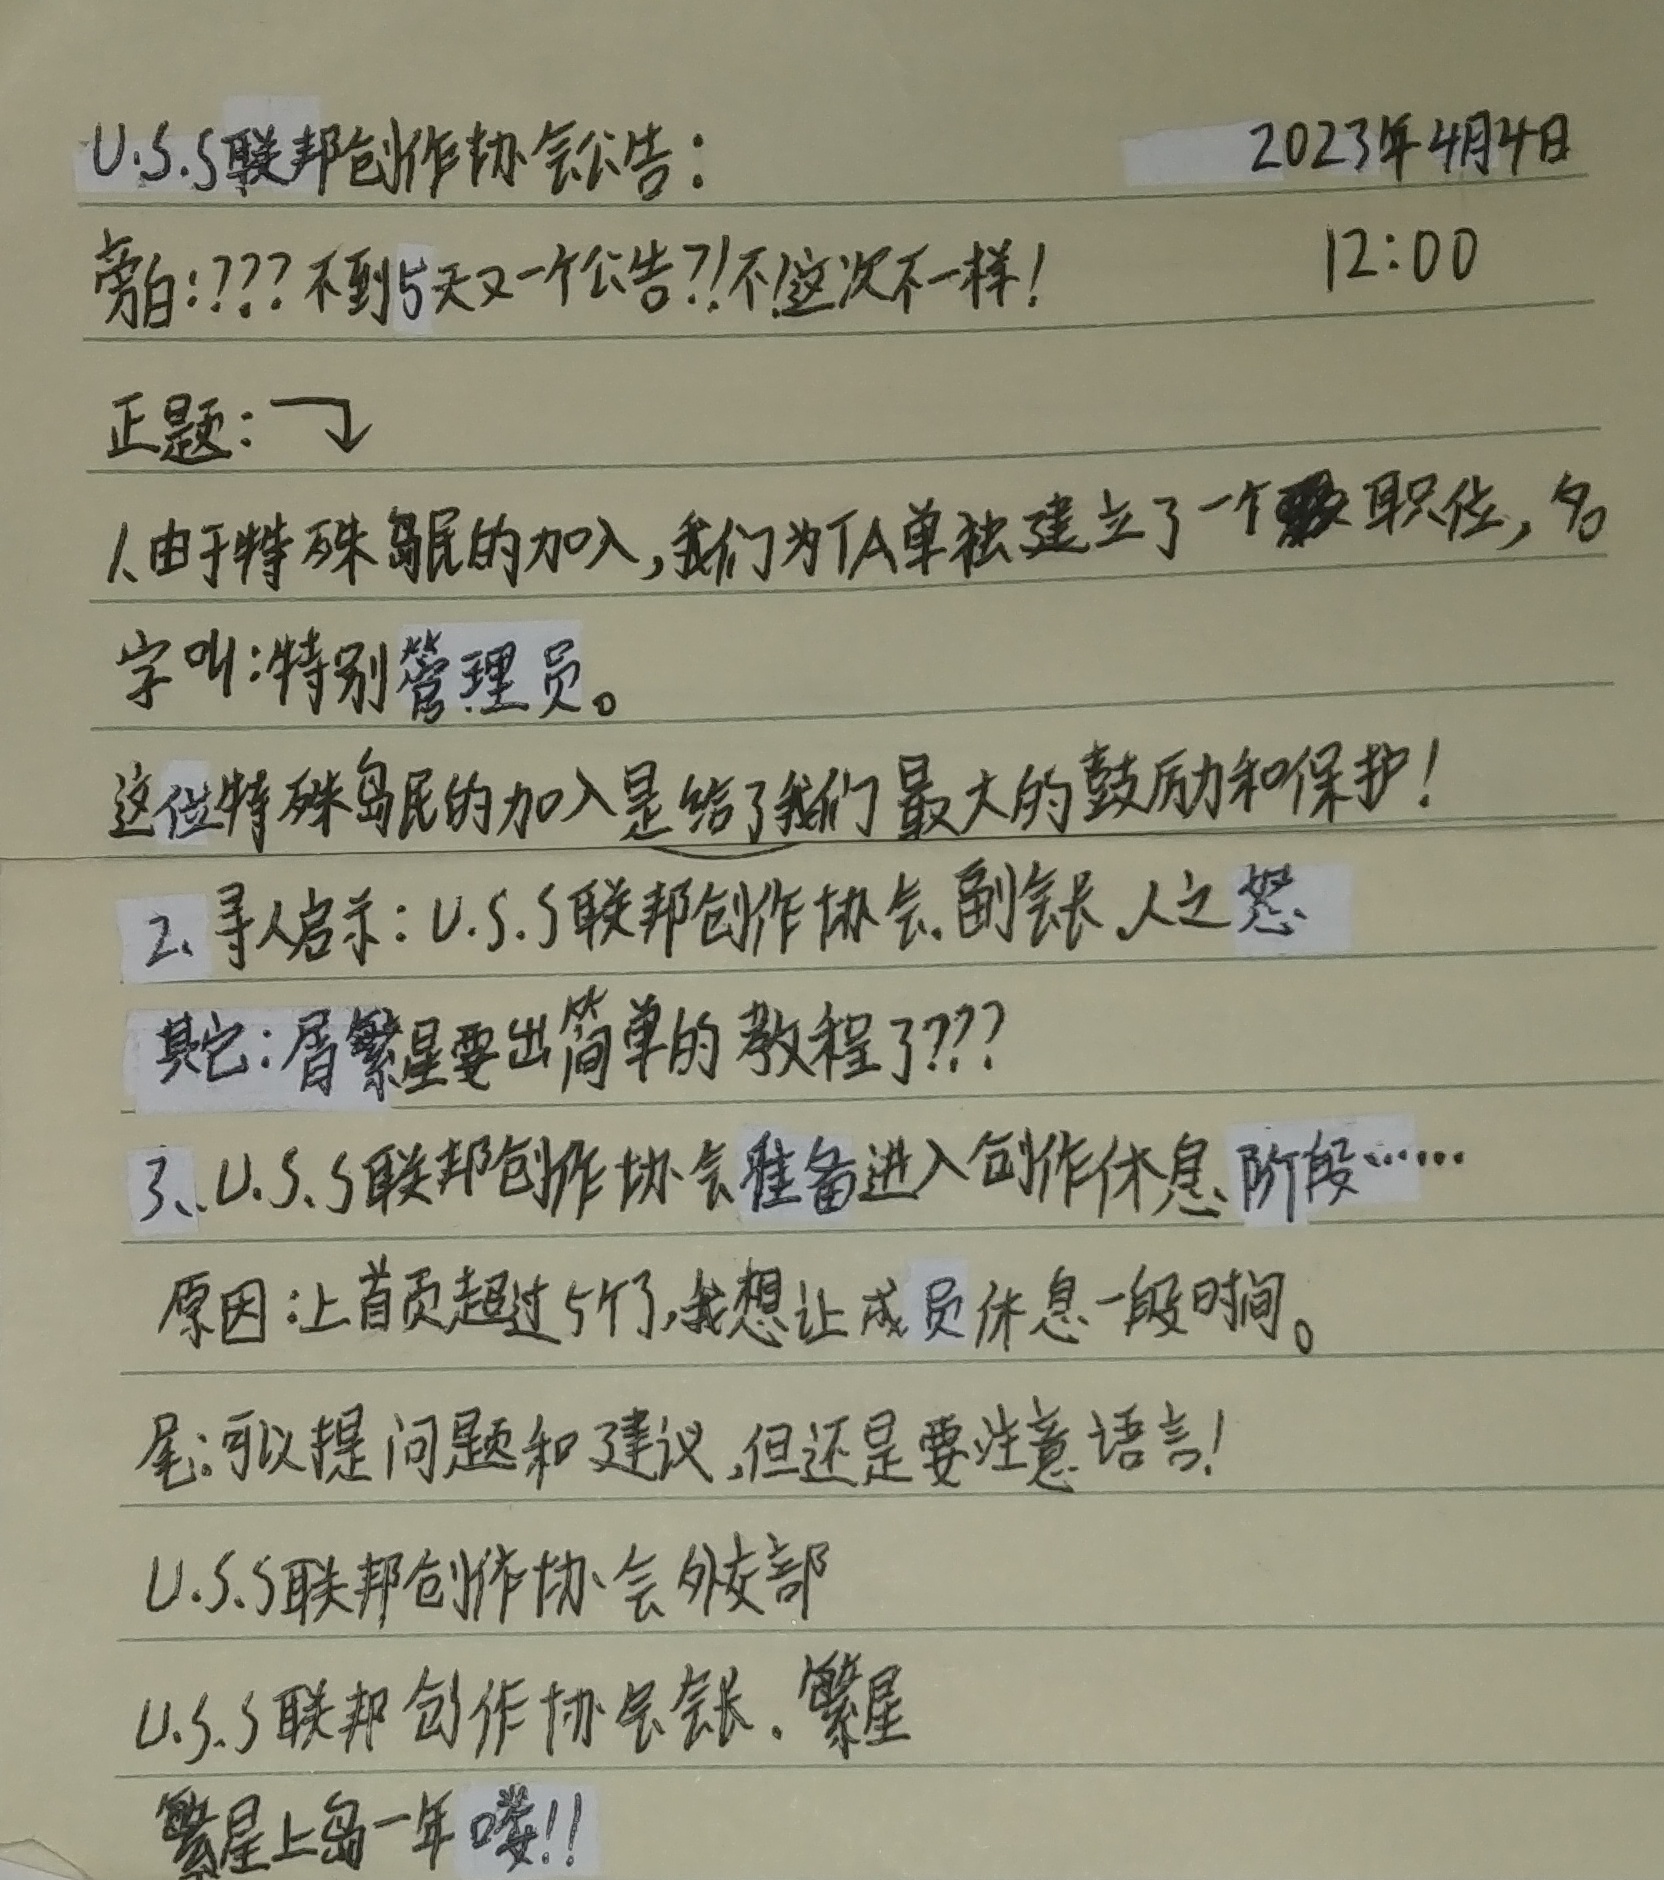 U.S.S联邦创作协会公告：
2023年4月4日
旁白：???不到5天又一个公告?!不!这次不一样!
12:00
正题：
1、由于特殊岛民的加入,我们为TA单独建立了一个职位,名
字叫：特别管理员。
这位特殊岛民的加入是给了我们最大的鼓励和保护!
2、寻人启示：U.S.S联邦创作协会.副会长.人之怒
其它：屑繁星要出简单的教程了???
3、U.S.S联邦创作协会准备进入创作休息阶段……
原因：上首页超过5个了,我想让成员休息一段时间。
尾：可以提问题和建议,但还是要注意语言!
U.S.S联邦创作协会外交部
U.S.S联邦创作协会会长.繁星
繁星上岛一年喽!!